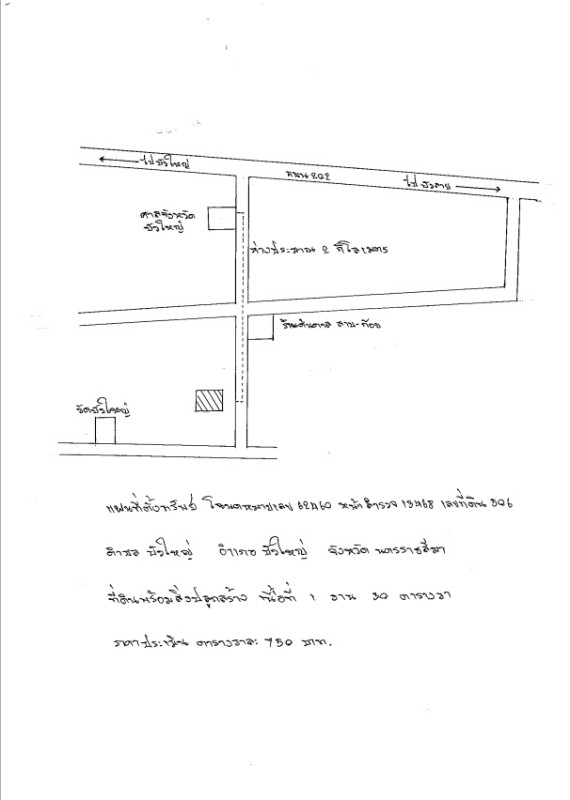 ไปบัวใหญ่
ถนน 202
ไปบัวลาย
ศาลจังหวัด
บัวใหญ่
ห่างประมาณ 2 กิโลเมตร
ร้าน
วัดบัวใหญ่
แผนที่ตั้งทรัพย์ โฉนดหมายเลข 62460 หน้าสำรวจ 13468 เลขที่ดิน 306
ตำบล บัวใหญ่ อำเภอ บัวใหญ่ จังหวัด นครราชสีมา
ที่ดินพร้อมสิ่งปลูกสร้าง เนื้อที่ 1 งาน 30 ตารางวา
ราคาประเมิน ตารางวาละ 750 บาท.